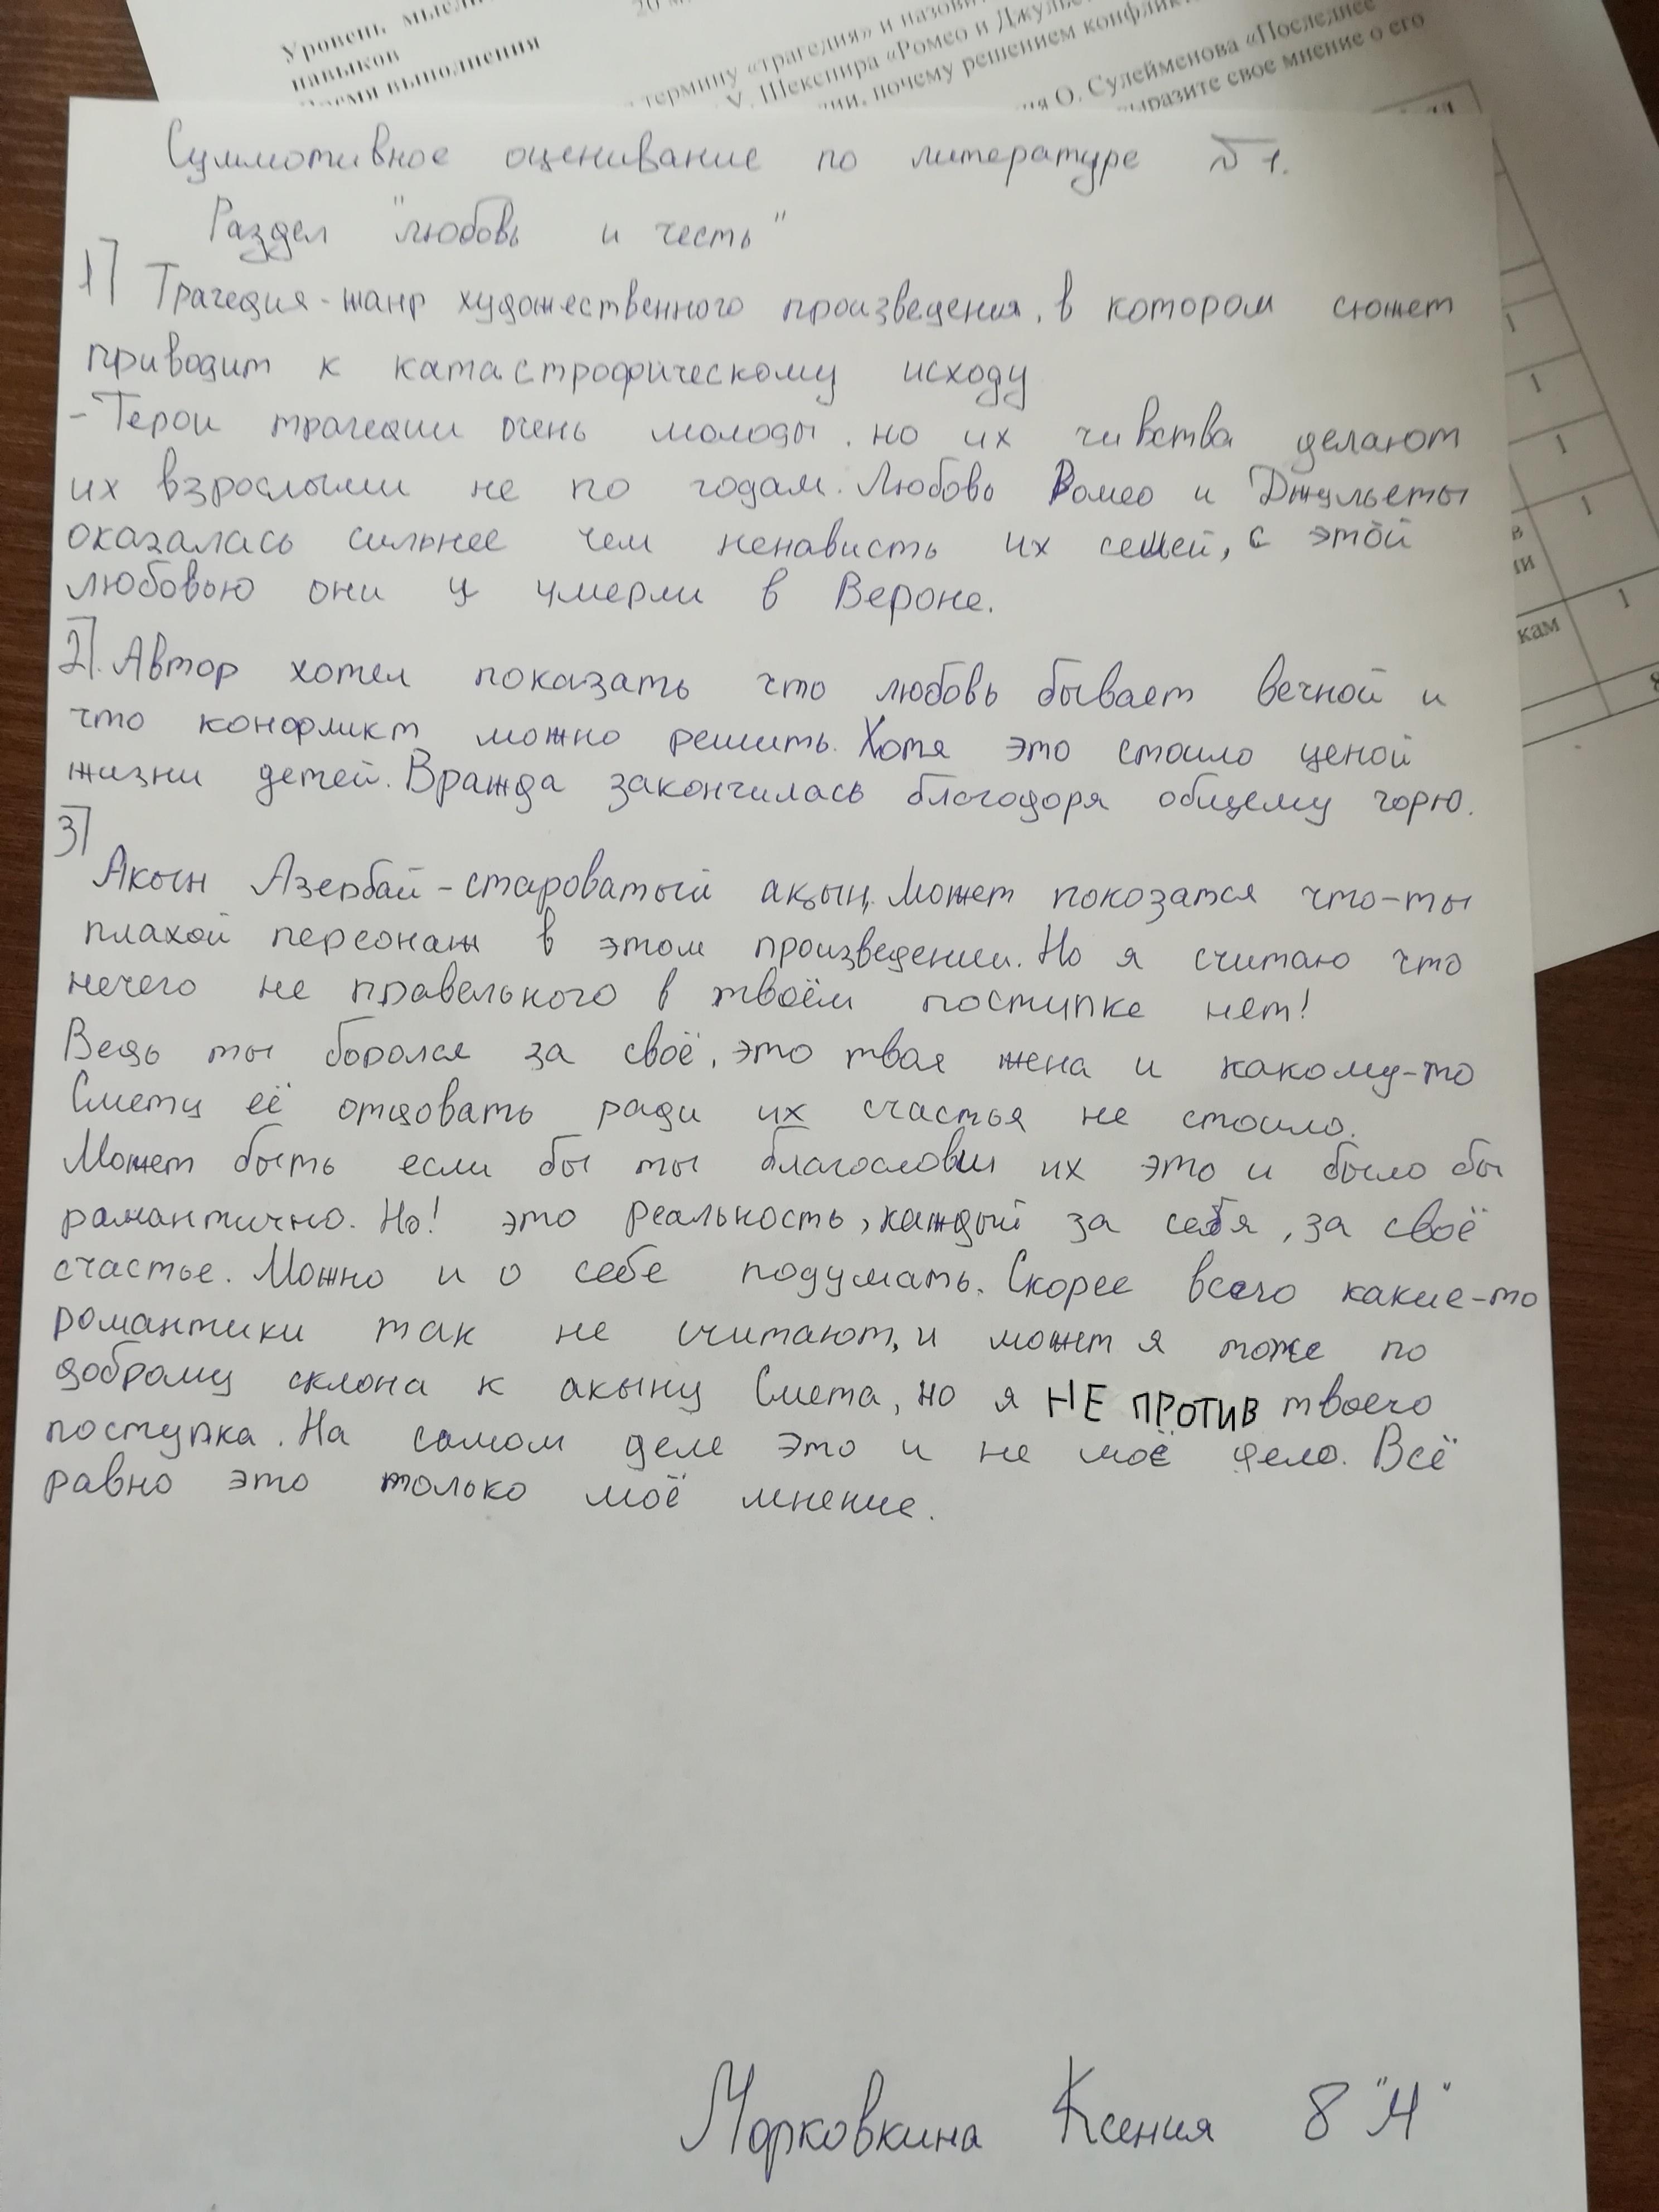 Уровень
навыков
выполнения
20
термину «трагедия» и
У. Шекспира «Ромео и
почему решением
О. Сулейменова «Последнее
выразите свое мнение о его
Суммотивное оценивание по литературе №1.
Раздел "любовь и честь"
1] Трагедия - жанр художественного произведения, в котором сюжет
приводит к катастрофическому исходу
- Герои трагедии очень молоды, но их чивства делают
их взрослыми не по годам. Любовь Ромео и Джульеты
оказалась сильнее чем ненависть их семей, с этой
любовью они и умерли в Вероне.
2]. Автор хотел показать что любовь бывает вечной и
что конфликт можно решить. Хотя это стоило ценой
жизни детей. Вражда закончилась благодоря общему горю.
3]
Акын Азербай - староватый ақын. Может покозатся что-ты
плахой персонаж в этом произведении. Но я считаю что
нечего не правельного в твоём поступке нет!
Ведь ты боролся за своё, это твоя жена и какому-то
Смету её отдовать ради их счастья не стоило.
Может быть если бы ты благословил их это и было бы
рамантично. Но! это реальность, каждый за себя, за своё
счастье. Можно и о себе подумать. Скорее всего какие-то
романтики так не считают, и может я тоже по
доброму склона к акыну Смета, но я НЕ ПРОТИВ твоего
поступка. На самом деле это и не моё дело. Всё
равно это только моё мнение.
1
1
1
1
в
ии
1
кам
8
Морковкина Ксения 8 "Ч"